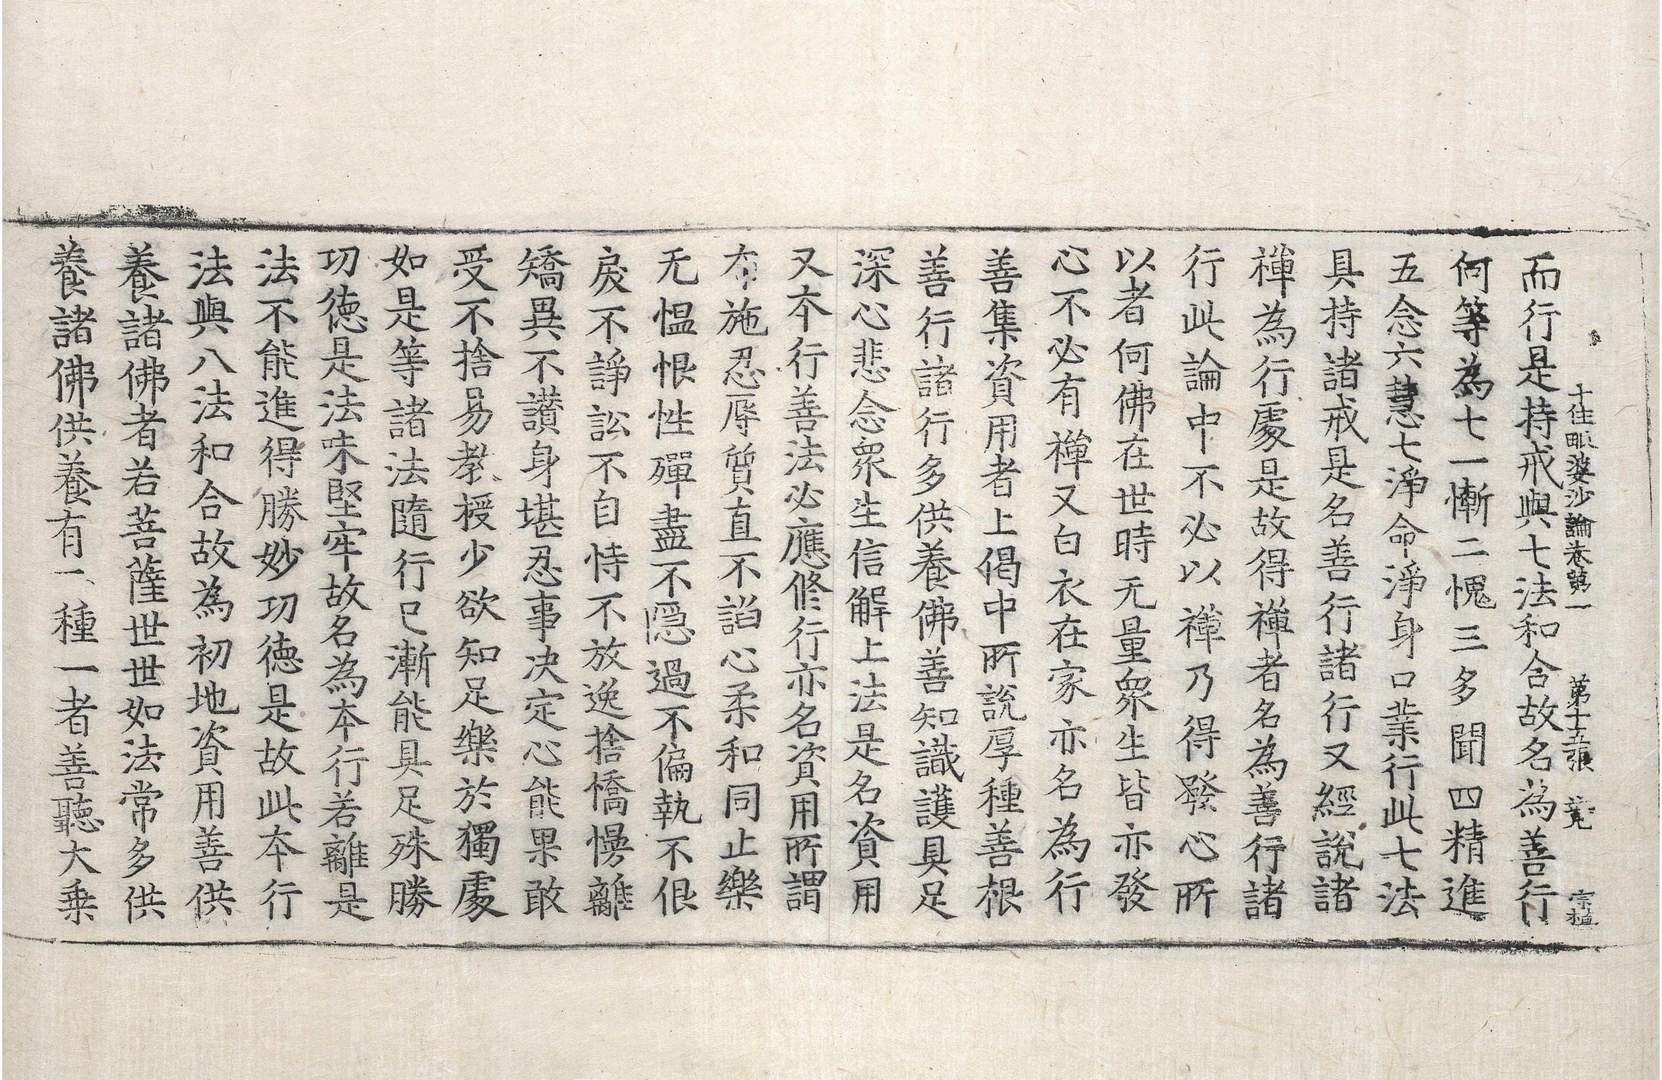 十住毗婆沙論卷第一 第十五張 竟 宗植
而行是持戒與七法和合故名為善行
何等為七一慚二愧三多聞四精進
五念六慧七淨命淨身口業行此七法
具持諸戒是名善行諸行又經說諸
禪為行處是故得禪者名為善行諸
行此論中不必以禪乃得發心所
以者何佛在世時无量眾生皆亦發
心不必有禪又白衣在家亦名為行
善集資用者上偈中所說厚種善根
善行諸行多供養佛善知識護具足
深心悲念眾生信解上法是名資用
又本行善法必應修行亦名資用所謂
布施忍辱質直不諂心柔和同止樂
无慍恨性殫盡不隱過不偏執不佷
戾不諍訟不自恃不放逸捨憍慢離
矯異不讚身堪忍事決定心能果敢
受不捨易教授少欲知足樂於獨處
如是等諸法隨行已漸能具足殊勝
功德是法味堅牢故名為本行若離是
法不能進得勝妙功德是故此本行
法與八法和合故為初地資用善供
養諸佛者若菩薩世世如法常多供
養諸佛供養有二種一者善聽大乘